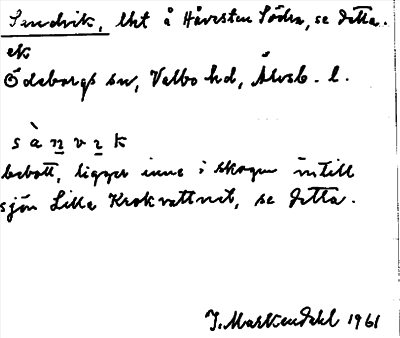 Sandvik, lht å Håvesten Södra, se detta.
ek
Ödeborgs sn, Valbo hd, Älvsb. l.
s à n v ɩ k
bebott, ligger inne i skogen intill
sjön Lilla Krokvattnet, se detta.
J. Markendahl 1961